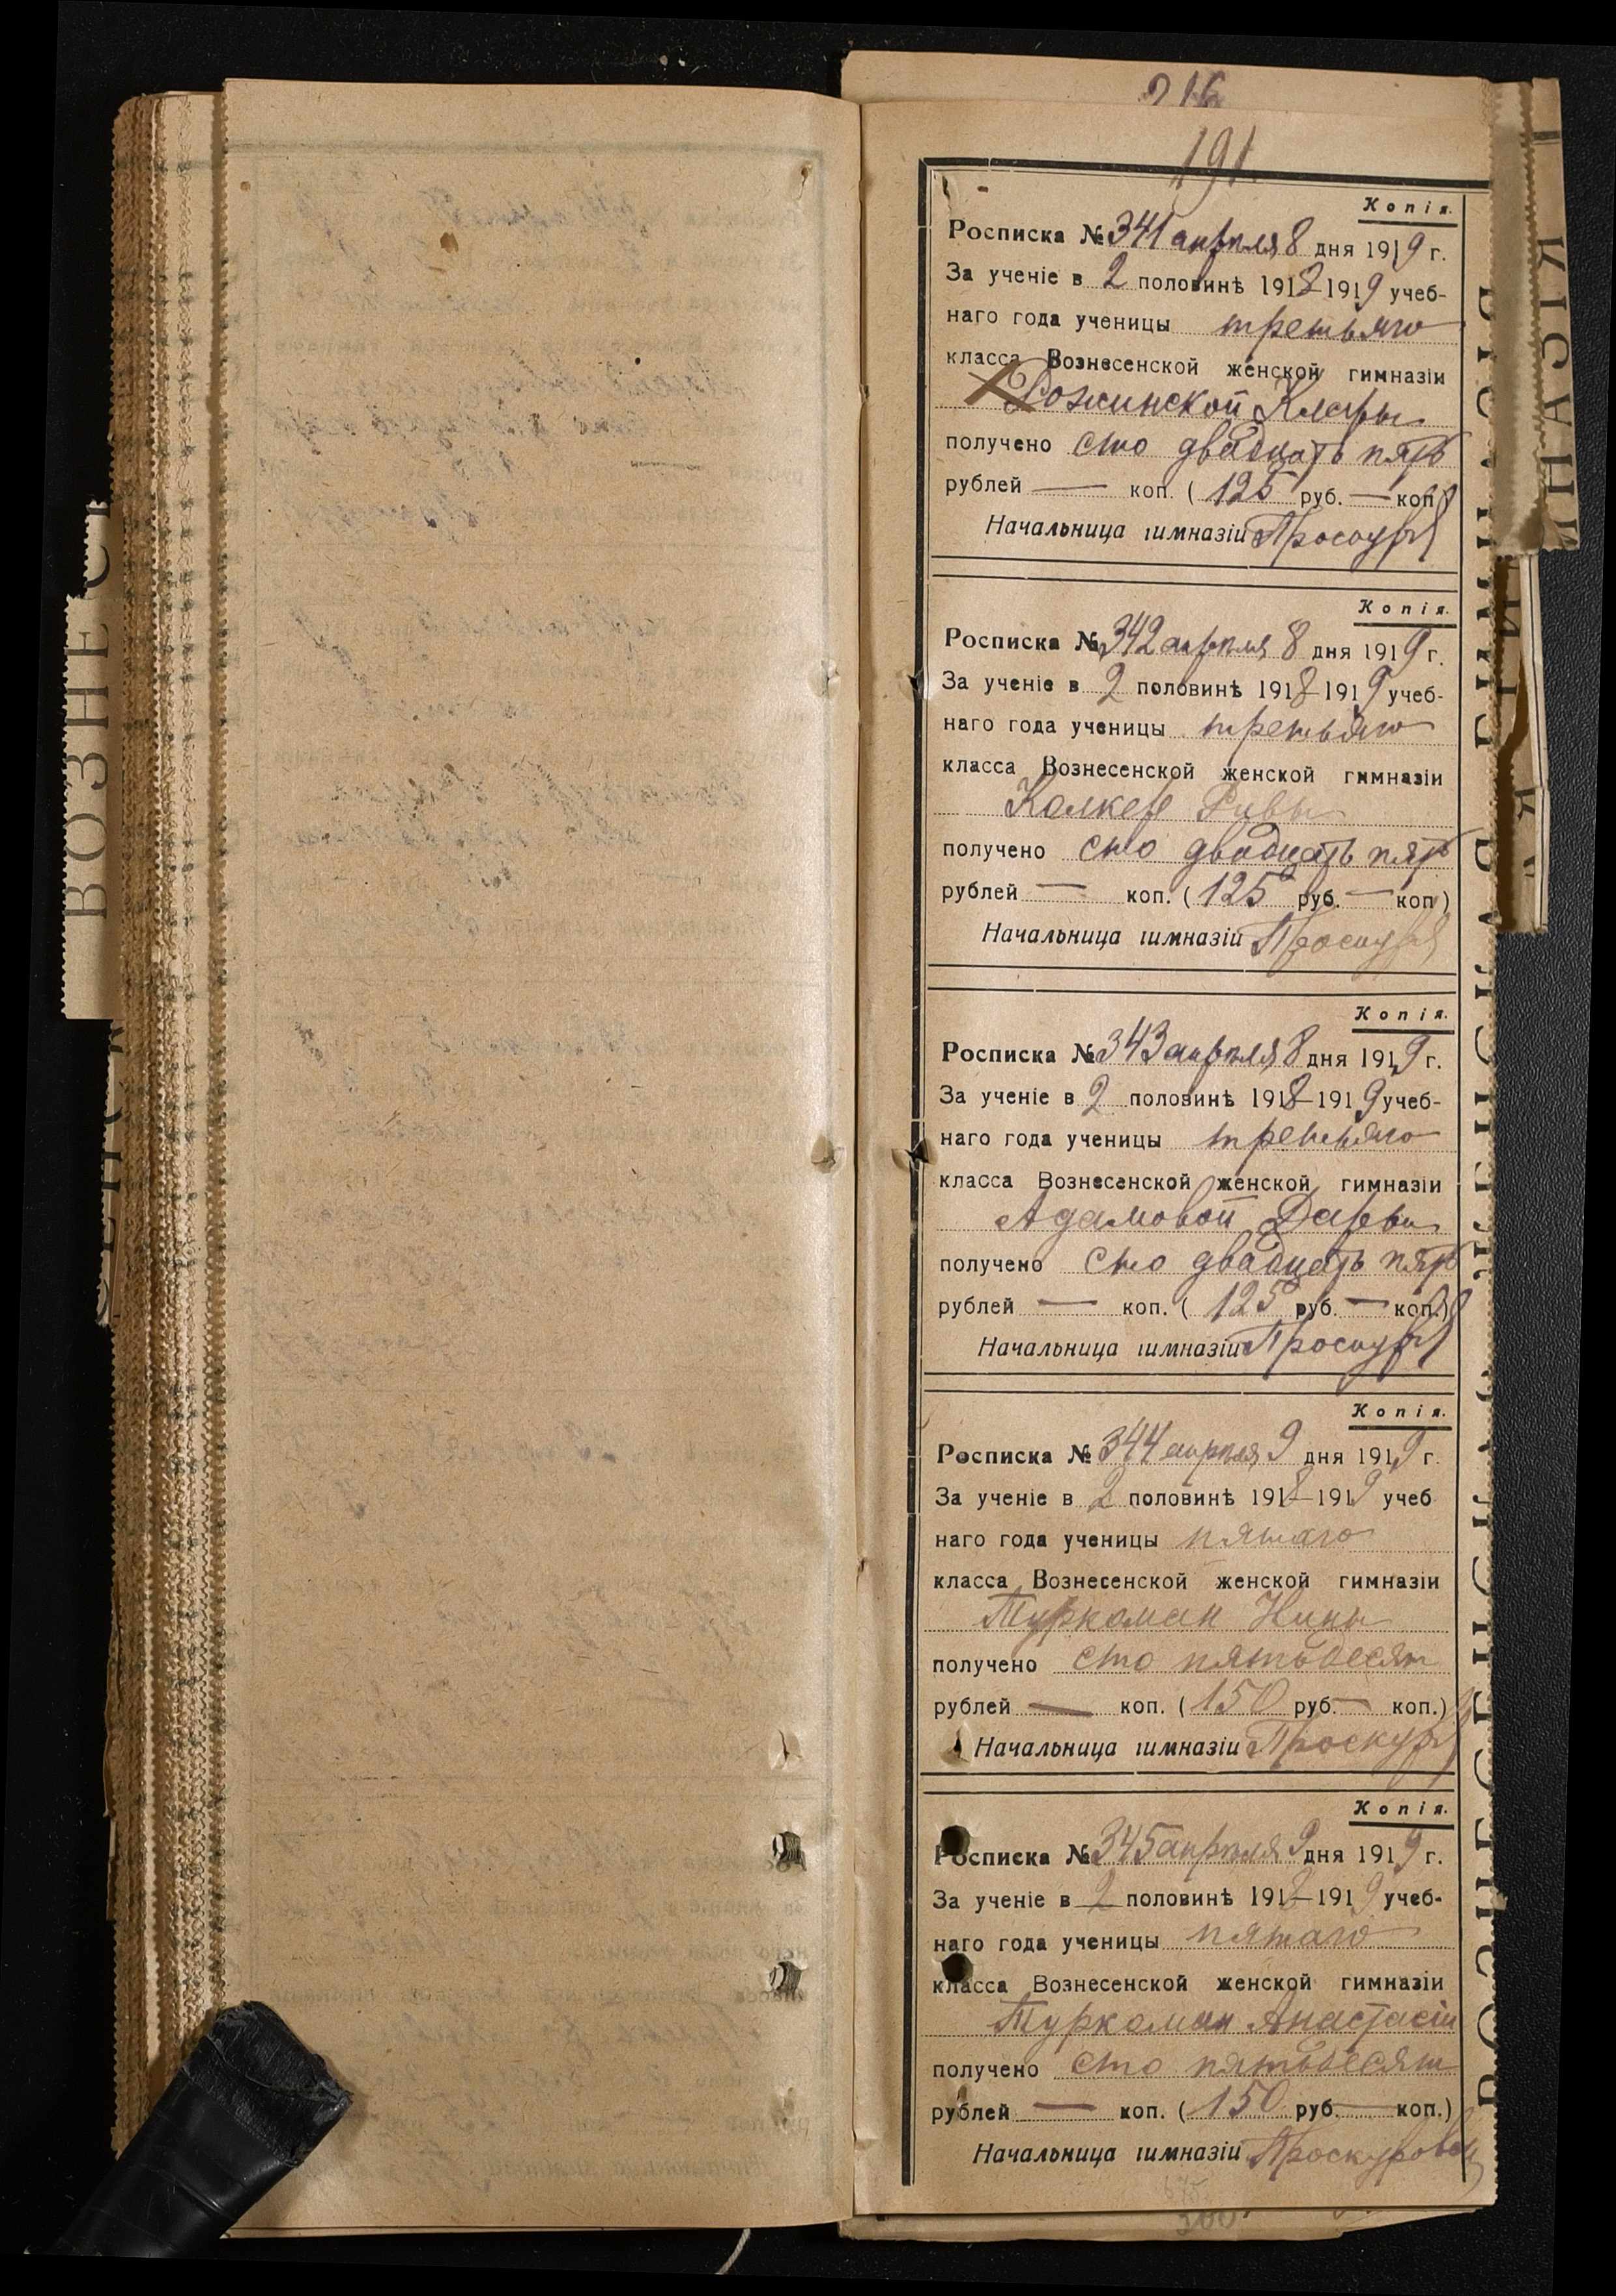 216
191.
Копія.
Росписка № 341 апрѣля 8 дня 1919 г.
За ученіе в 2 половинѣ 1918-1919 учеб-
наго года ученицы третьяго
класса Вознесенской женской гимназіи
Рожинской Клары
получено сто двадцать пять
рублей — коп. ( 125 руб. — коп.)
Начальница гимназіи Проскур
Копія.
Росписка № 342 апрѣля 8 дня 1919 г.
За ученіе в 2 половинѣ 1918-1919 учеб-
наго года ученицы третьяго
класса Вознесенской женской гимназіи
Колкер Ривы
получено сто двадцать пять
рублей — коп. ( 125 руб. — коп)
Начальница гимназіи Проскур
Копія.
Росписка № 343 апрѣля 8 дня 1919 г.
За ученіе в 2 половинѣ 1918-1919 учеб-
наго года ученицы третьяго
класса Вознесенской женской гимназіи
Адамовой Дарьи
получено сто двадцать пять
рублей — коп. ( 125 руб. — коп.)
Начальница гимназіи Проскур
Копія.
Росписка № 344 апрѣля 9 дня 1919 г.
За ученіе в 2 половинѣ 1918-1919 учеб
наго года ученицы пятаго
класса Вознесенской женской гимназіи
Туркоман Нины
получено сто пятьдесят
рублей — коп. ( 150 руб — коп.)
Начальница гимназіи Проскур
Копія.
Росписка № 345 апрѣля 9 дня 1919 г.
За ученіе в 2 половинѣ 1918-1919 учеб-
наго года ученицы пятаго
класса Вознесенской женской гимназіи
Туркоман Анастасіи
получено сто пятьдесят
рублей — коп. ( 150 руб. — коп.)
Начальница гимназіи Проскуровск
ВОЗНЕС